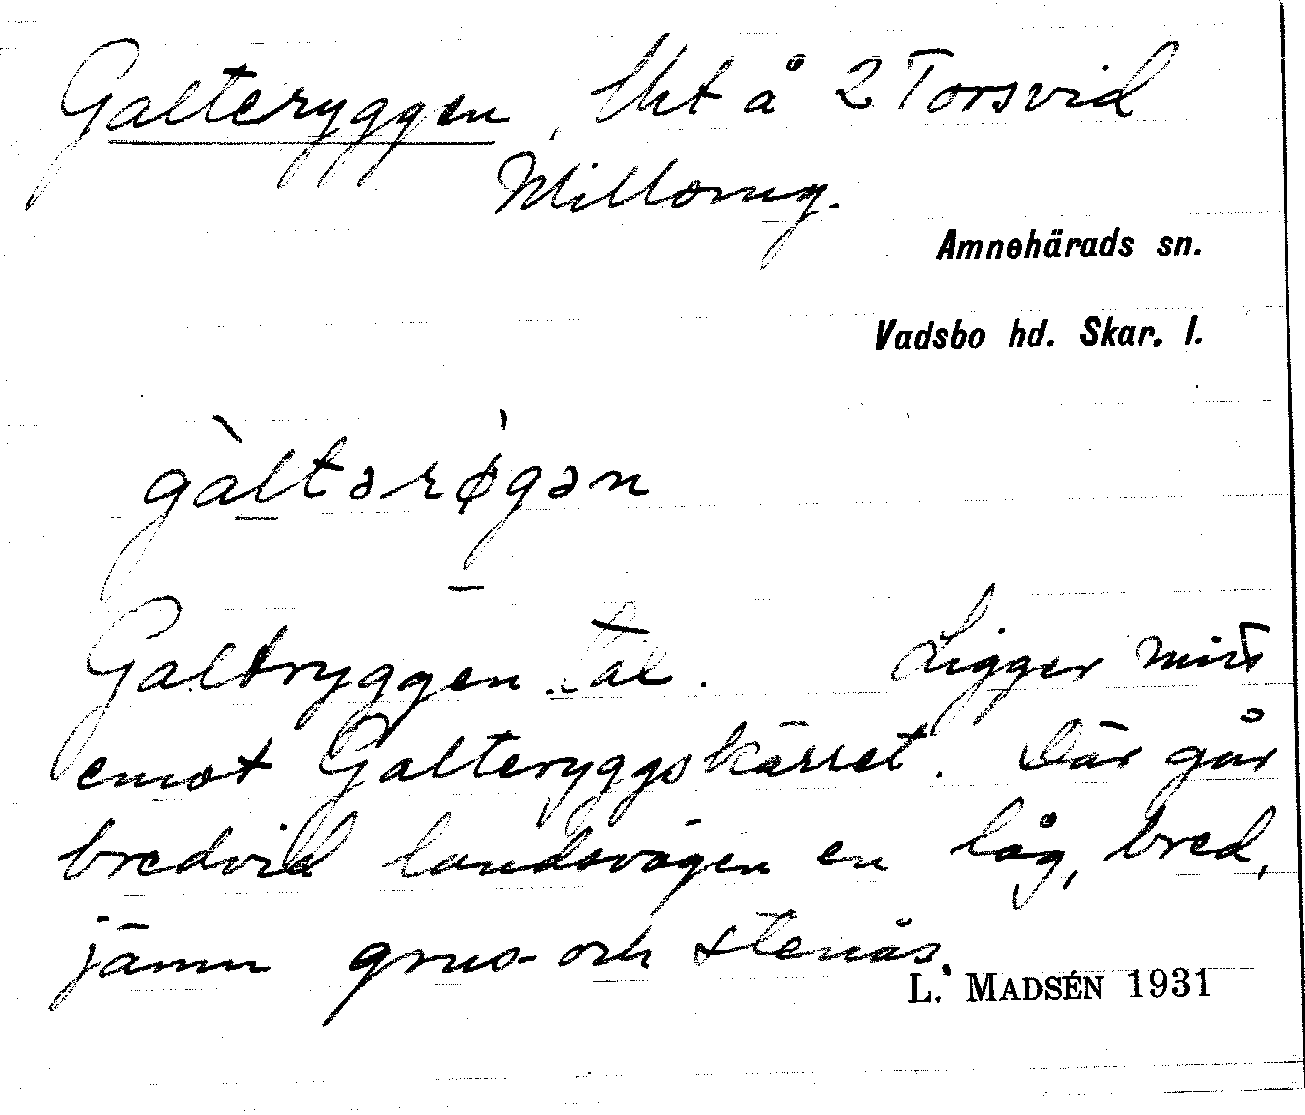 Galteryggen, Uht å 2 Torsvid
Millomg.
Amnehärads sn.
Vadsbo hd. Skar. l.
gàltərø̀gən
Galtryggen. tal. Ligger mitt
emot Galteryggskärret. Där går
bredvid landsvägen en låg, bred,
jämn grus- och stenås.
L. MADSÉN 1931